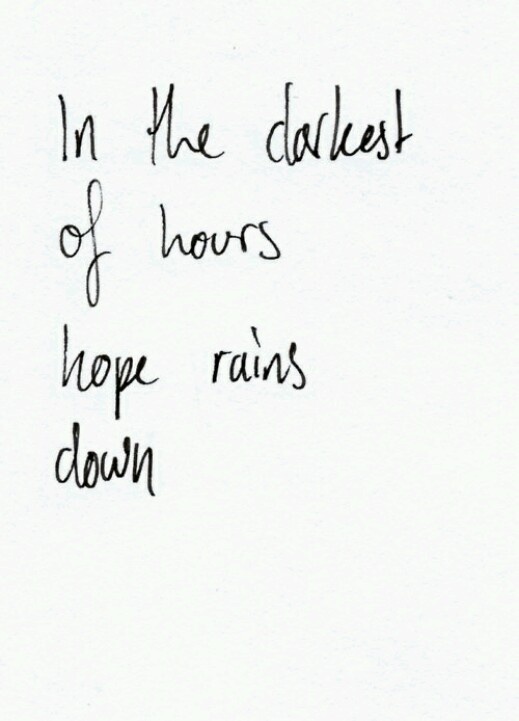 In the darkest
of hours
hope rains
down